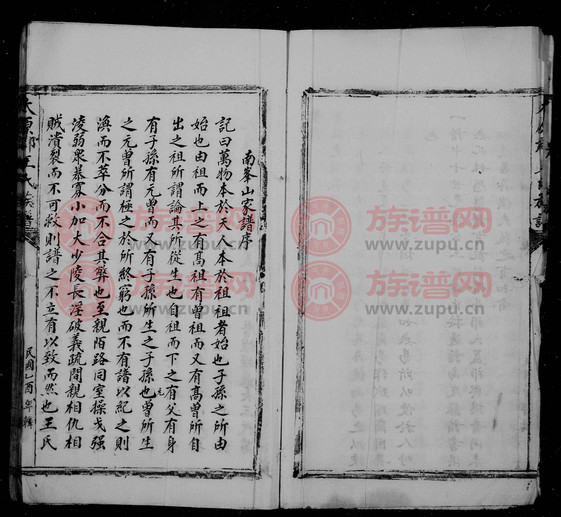 南峯山家譜序
記曰萬物本於天人本於祖祖者始也子孫之所由
始也由祖而上之有髙祖有曾祖而又有髙曾所自
出之祖所謂論其所從生也自祖而下之有父有身
有子孫有元曾而又有子孫所生之子孫也曾所生
元
之元曾所謂極之於所終窮也而不有譜以紀之則
渙而不萃分而不合其弊也至親陌路同室操戈强
淩弱衆暴寡小加大少陵長淫破義疏間親相仇相
賊潰裂而不可救則譜之不立有以致而然也王氏
民國乙酉年輯
族谱网
www.zupu.cn
族谱网
www.zupu.cn
族谱网
www.zupu.cn
族谱网
www.zupu.cn